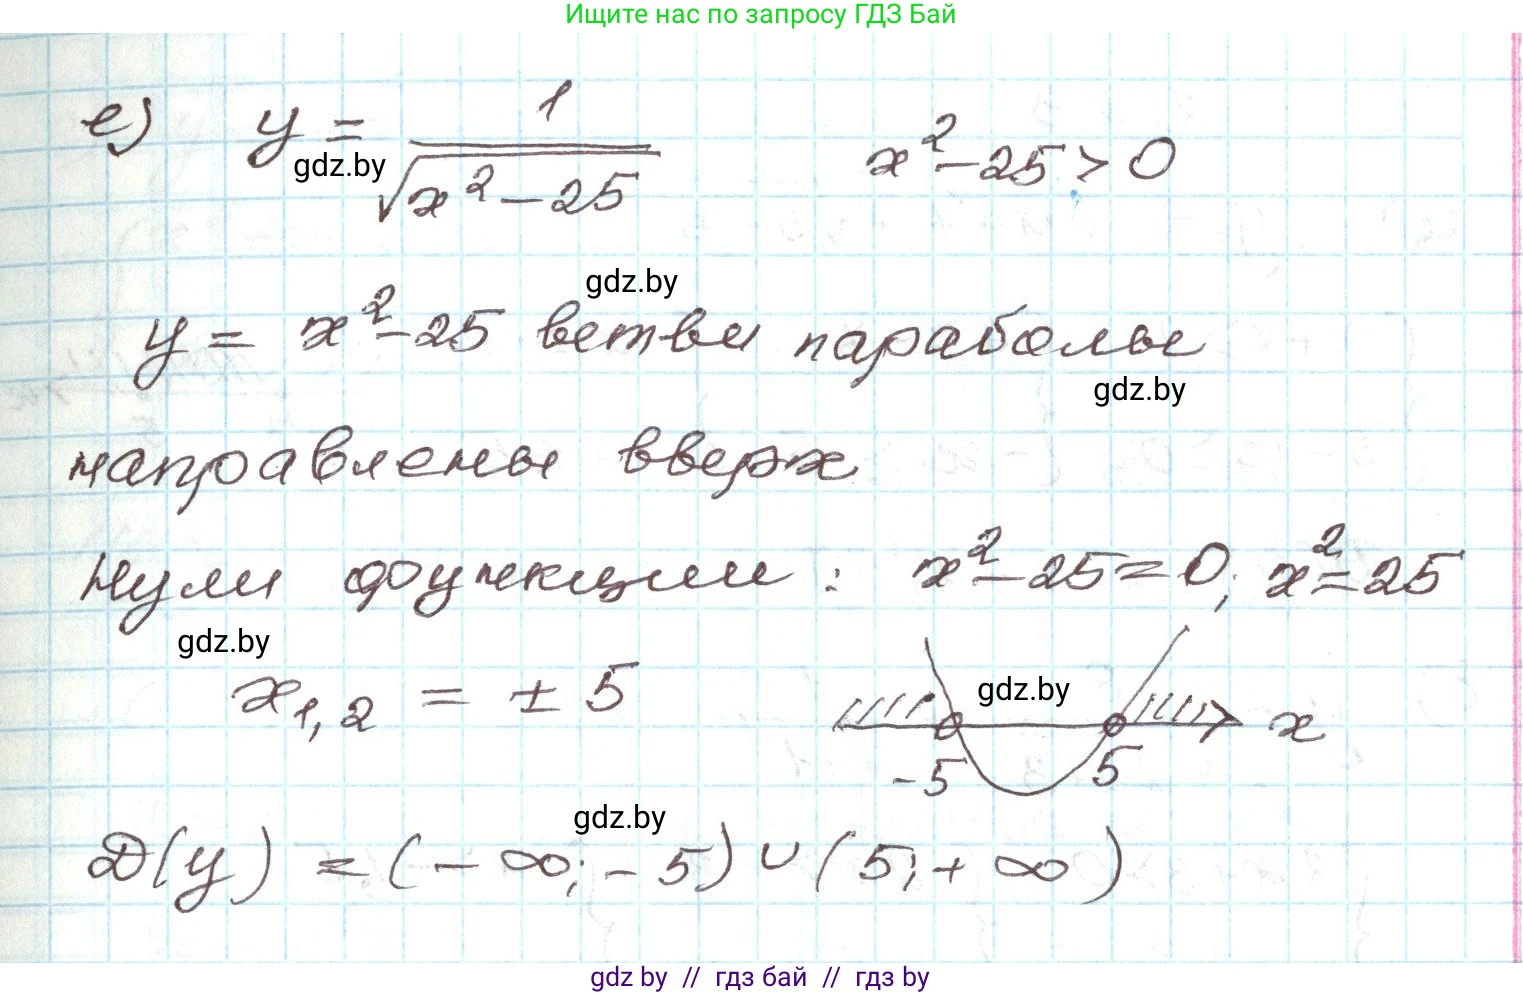 Ищите нас по запросу ГДЗ Бай
е) y = 1/√(x² - 25) x² - 25 > 0
gdz.by
gdz.by
y = x² - 25 ветви параболы
gdz.by
направлены вверх
Нули функции : x² - 25 = 0; x² = 25
gdz.by
x₁,₂ = ± 5
gdz.by
x
-5 5
gdz.by
D(y) = (- ∞; - 5) ∪ (5; + ∞)
gdz.by // гдз бай // гдз by